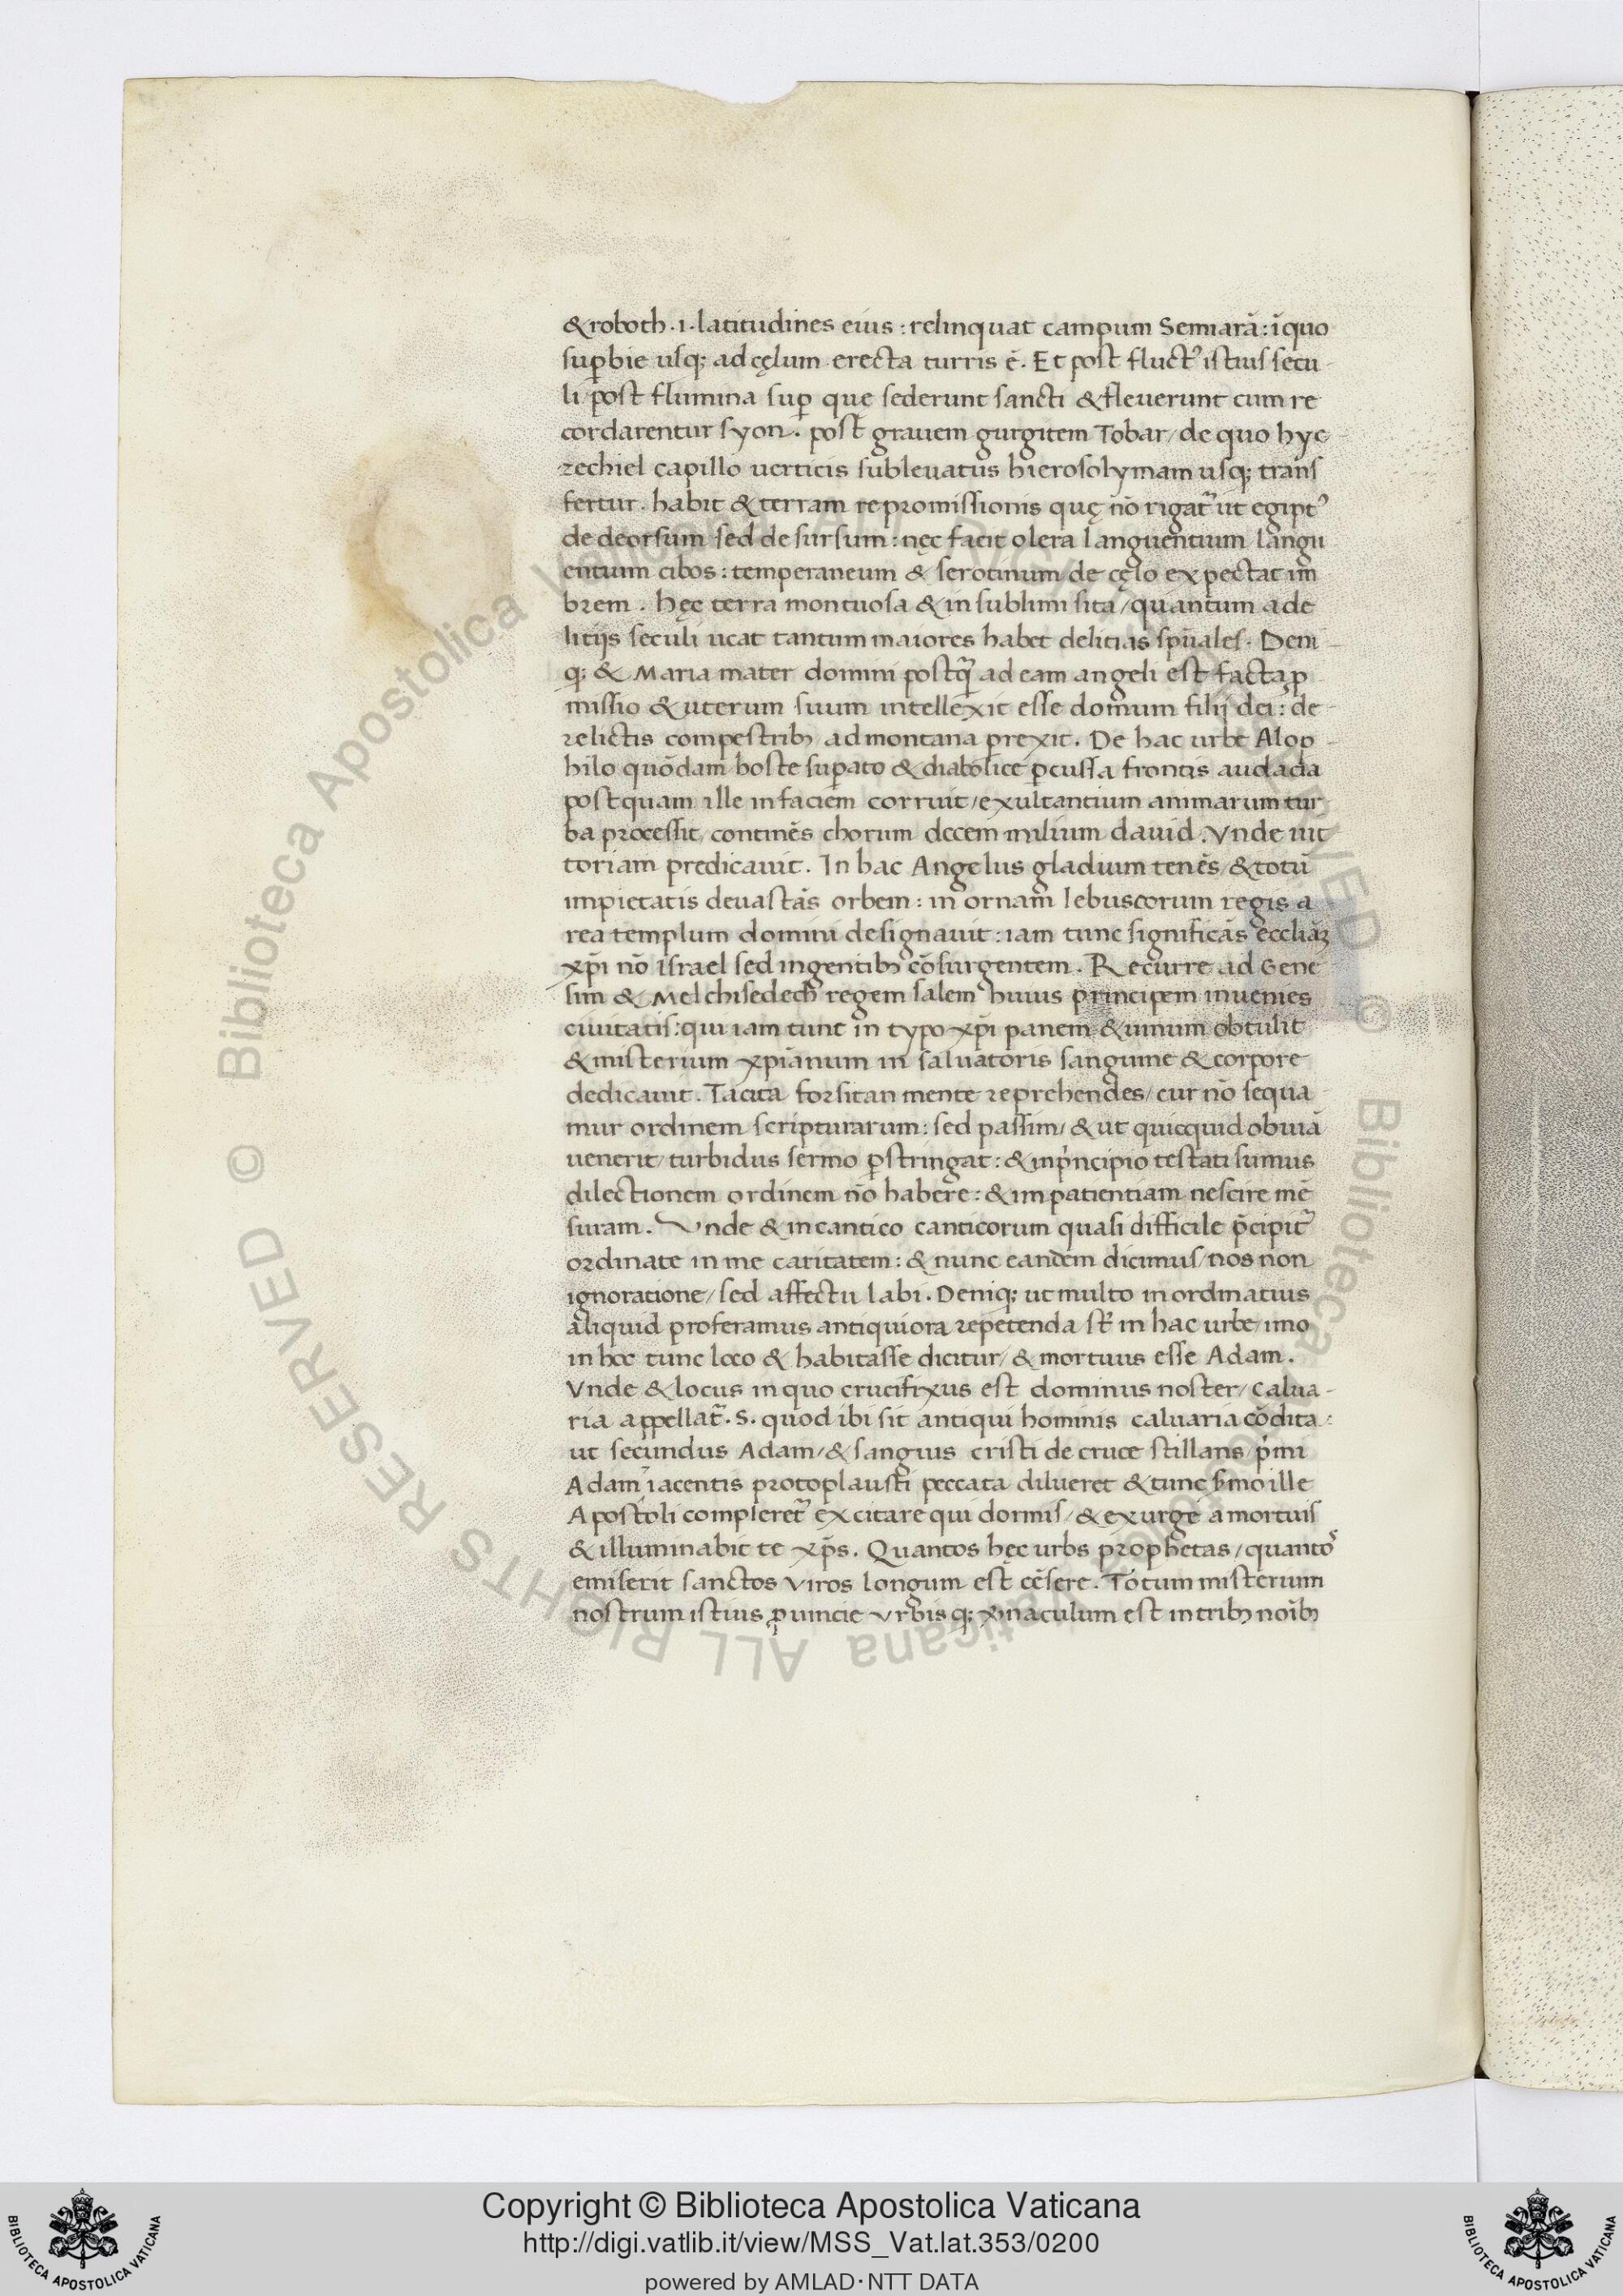 & roboth .i. latitudines eius : relinquat campum Sennarā : ī quo
suꝑbie usq; ad cęlum erecta turris ē. Et post fluctꝰ istius secu-
li / post flumina suꝑ que sederunt sancti & fleuerunt cum re
cordarentur syon . post grauem gurgitem Tobar / de quo hye-
zechiel capillo uerticis subleuatus hierosolymam usq; trans
fertur . habit & terram repromissionis quę nō rigat᷑ ut egiptꝰ
de deorsum sed de sursum : nęc facit olera languentium langu
entium cibos : temperaneum & serotinum de cęlo expectat im̄
brem . hęc terra montuosa & in sublimi sita / quantum a de
litijs seculi ucat tantum maiores habet delitias sp̄uales . Deni-
q; & Maria mater domini postq̄ ad eam angeli est facta ꝓ
missio & uterum suum intellexit esse domum filij dei : de-
relictis compestribꝫ ad montana prexit . De hac urbe Alop-
hilo quōdam hoste suꝑato & diabolice ꝑcussa frontis audacia
postquam ille in faciem corruit / exultantium animarum tur
ba processit / continēs chorum decem milium dauid . Vnde uic
toriam predicauit . In hac Angelus gladium tenēs / & totū
impietatis deuastās orbem : in ornam̄ Iebuscorum regis a
rea templum domini designauit : iam tunc significās eccliāꝫ
xp̄i nō israel sed in gentibꝫ cōsurgentem . Recurre ad Gene
sim & Melchisedech regem salem huius principem inuenies
ciuitatis : qui iam tunc in typo xp̄i panem & uinum obtulit
& misterium xp̄ianum in saluatoris sanguine & corpore
dedicauit . Tacita forsitan mente reprehendes / cur nō sequa
mur ordinem scripturarum : sed passim / & ut quicquid obuiā
uenerit / turbidus sermo ꝑstringat : & in pͥncipio testati sumus
dilectionem ordinem nō habere : & impatientiam nescire mē
suram . Vnde & in cantico canticorum quasi difficile p̄cipit᷑
ordinate in me caritatem : & nunc eandem dicimus / nos non
ignoratione / sed affectu labi . Deniq; ut multo inordinatius
aliquid proferamus antiquiora repetenda st̄ in hac urbe / imo
in hoc tunc loco & habitasse dicitur / & mortuus esse Adam .
Vnde & locus in quo crucifixus est dominus noster / Calua-
ria appellat᷑ . S. quod ibi sit antiqui hominis caluaria cōdita :
ut secundus Adam / & sanguis cristi de cruce stillans / pͥmi
Adam iacentis protoplausti peccata dilueret & tunc s̄mo ille
Apostoli compleret᷑ excitare qui dormis / & exurge a mortuis
& illuminabit te xp̄s . Quantos hęc urbs prophetas / quantoˢ
emiserit sanctos viros longum est cēsere . Totum misterium
nostrum istius ꝓuincie vrbisq; v̄naculum est in tribꝫ noībꝫ
© Biblioteca Apostolica Vaticana ALL RIGHTS RESERVED © Biblioteca Apostolica Vaticana ALL RIGHTS RESERVED
Copyright © Biblioteca Apostolica Vaticana
http://digi.vatlib.it/view/MSS_Vat.lat.353/0200
powered by AMLAD·NTT DATA
BIBLIOTECA APOSTOLICA VATICANA
BIBLIOTECA APOSTOLICA VATICANA